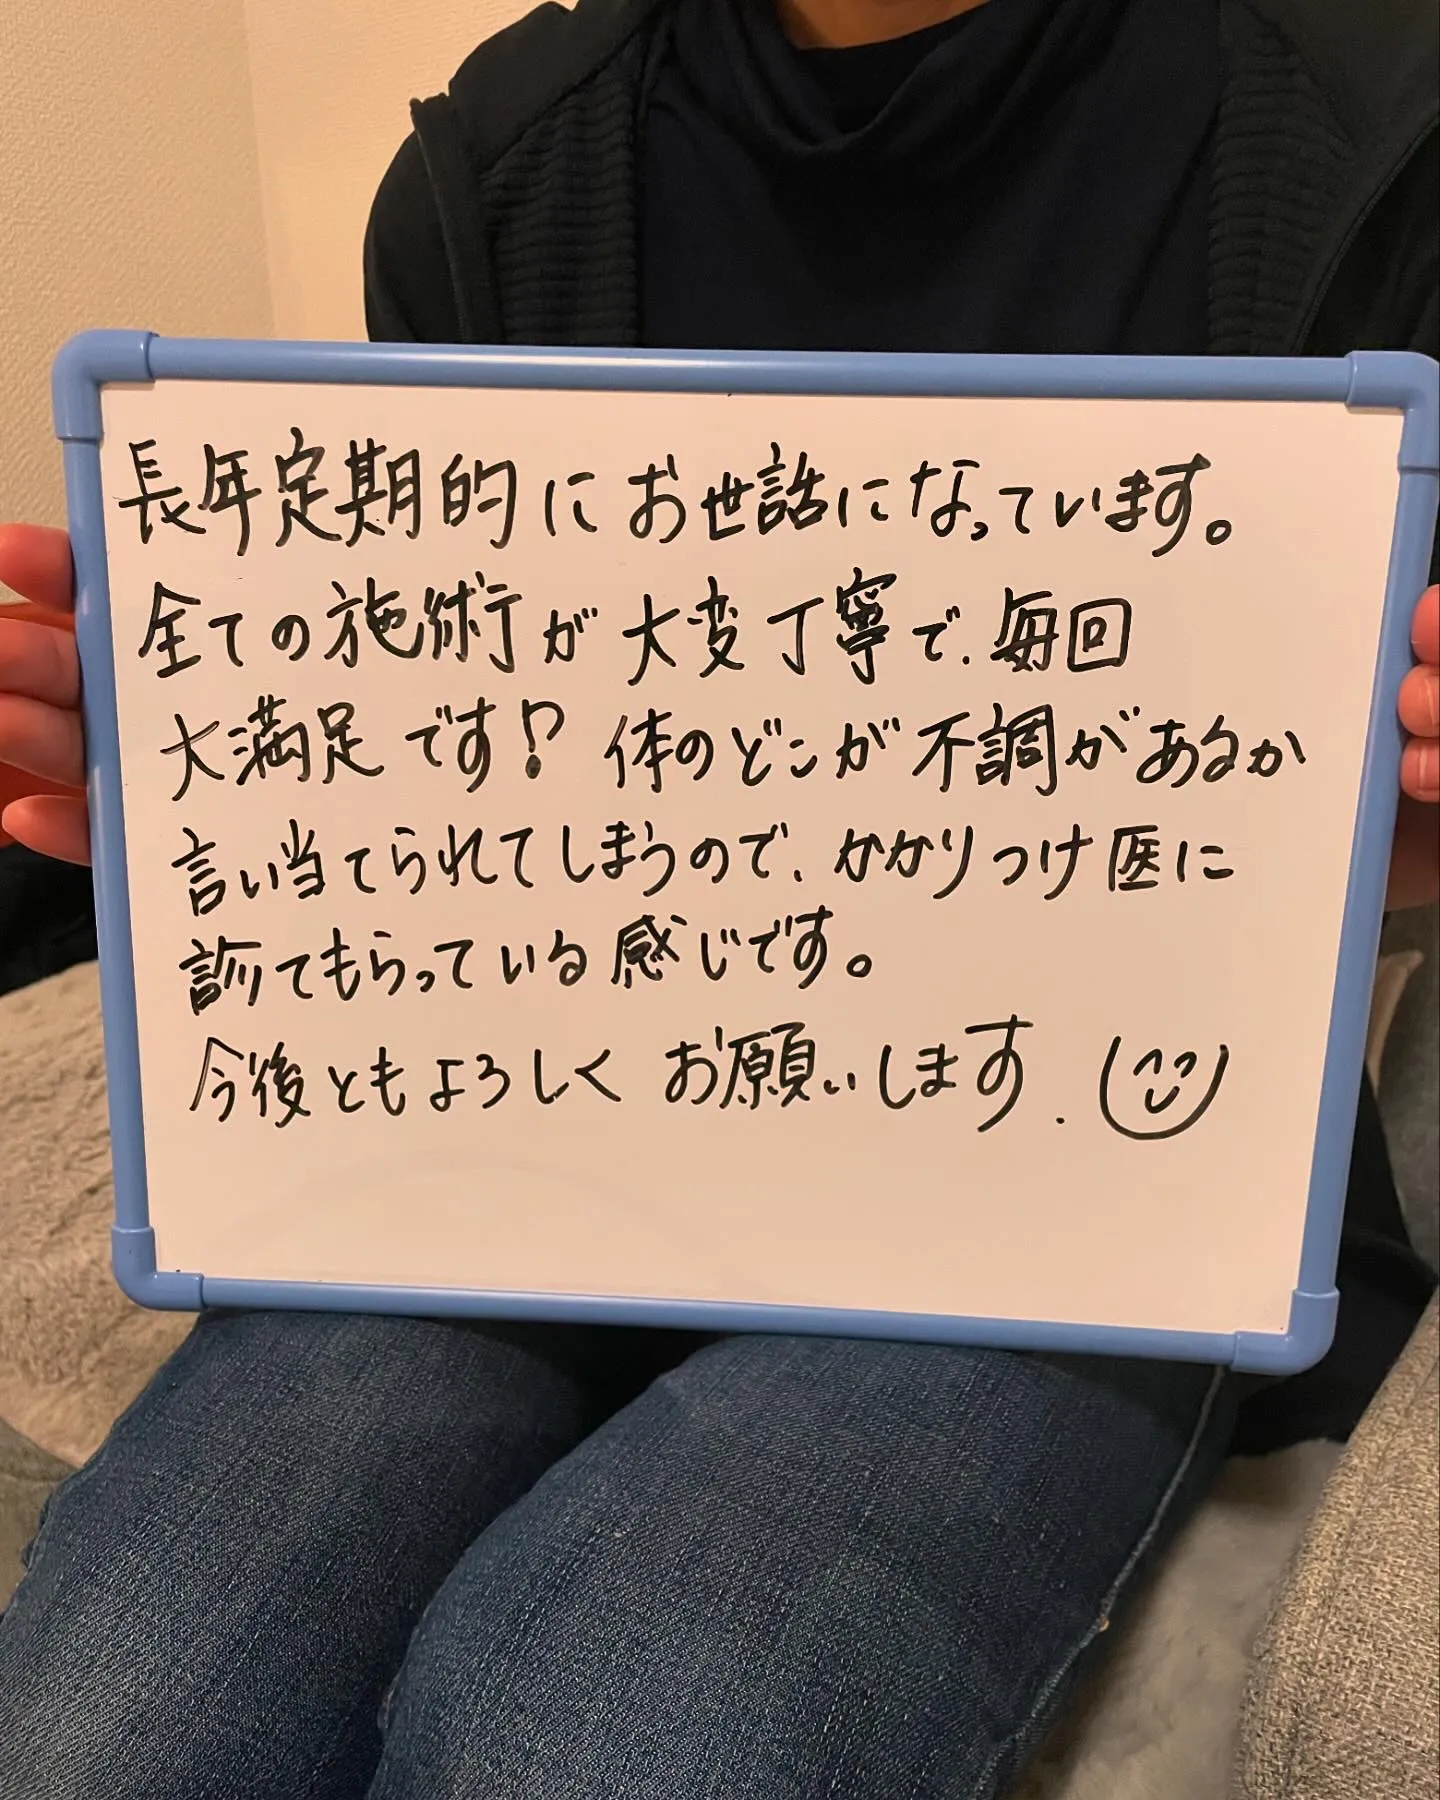 長年定期的にお世話になっています。
全ての施術が大変丁寧で、毎回
大満足です! 体のどこが不調があるか
言い当てられてしまうので、かかりつけ医に
診てもらっている感じです。
今後ともよろしくお願いします.